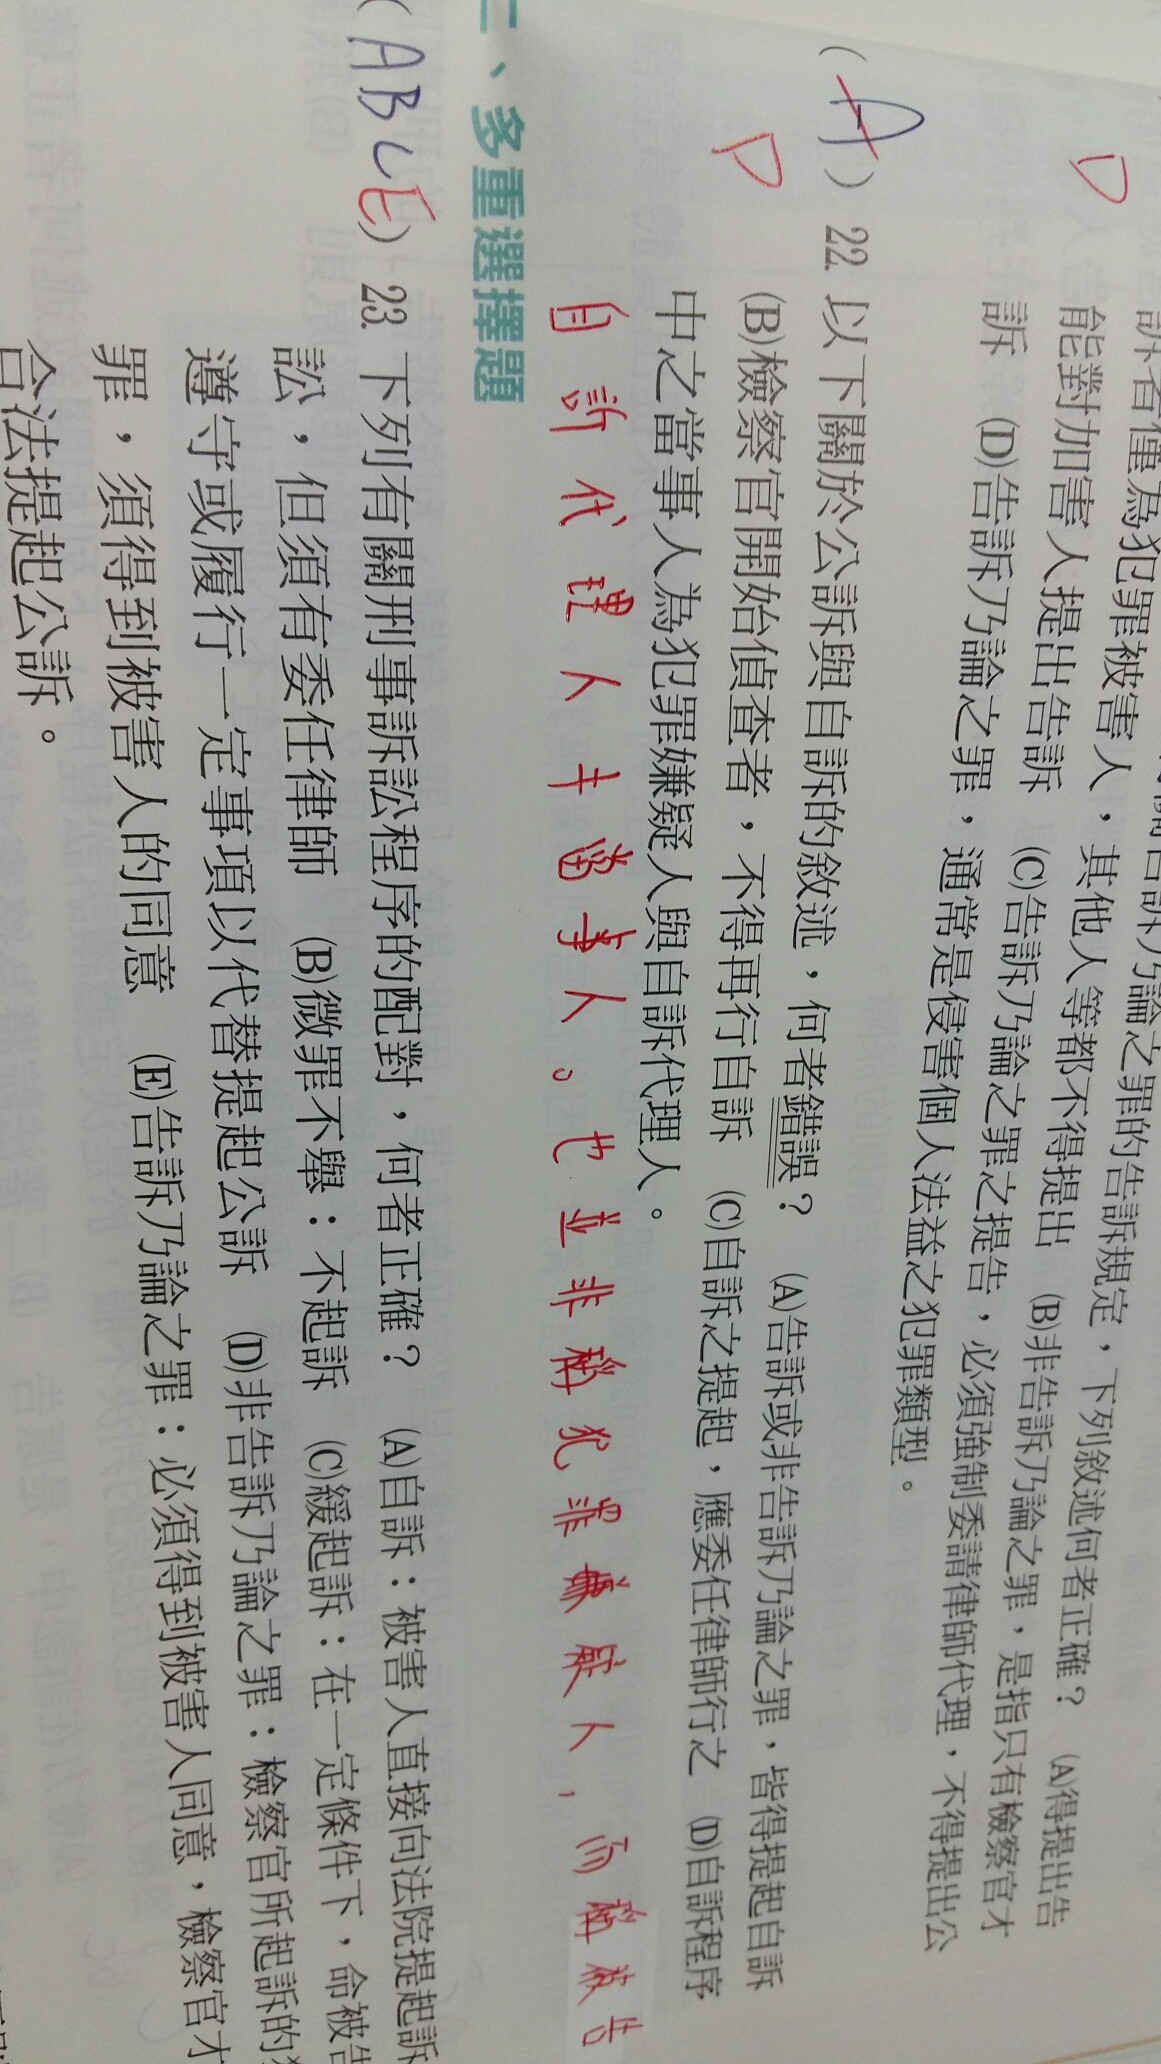 訴者僅為犯罪被害人，其他人等都不得提出 (B)非告訴乃論之罪，是指只有檢察官才
關告訴乃論之罪的告訴規定，下列敘述何者正確？ (A)得提出告
能對加害人提出告訴 (C)告訴乃論之罪之提告，必須強制委請律師代理，不得提出公
D
訴 (D)告訴乃論之罪，通常是侵害個人法益之犯罪類型。
(A) 22. 以下關於公訴與自訴的敘述，何者錯誤？ (A)告訴或非告訴乃論之罪，皆得提起自訴
D
(B)檢察官開始偵查者，不得再行自訴 (C)自訴之提起，應委任律師行之 (D)自訴程序
中之當事人為犯罪嫌疑人與自訴代理人。
自訴代理人非當事人。也並非稱犯罪嫌疑人，而稱被告
二、多重選擇題
(ABCE) 23. 下列有關刑事訴訟程序的配對，何者正確？ (A)自訴：被害人直接向法院提起訴
訟，但須有委任律師 (B)微罪不舉：不起訴 (C)緩起訴：在一定條件下，命被告
遵守或履行一定事項以代替提起公訴 (D)非告訴乃論之罪：檢察官所起訴的
罪，須得到被害人的同意 (E)告訴乃論之罪：必須得到被害人同意，檢察官才
合法提起公訴。